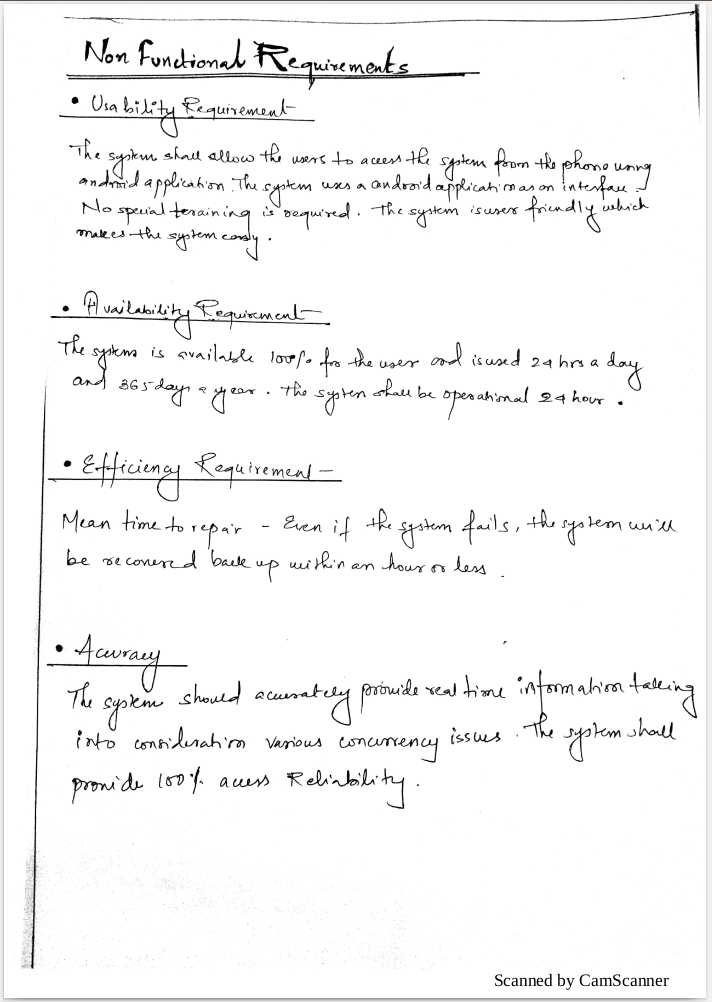 Non Functional Requirements
• Usability Requirement
The system shall allow the users to access the system from the phone using
android application. The system uses a android application as an interface.
No special teraining is required. The system is user friendly which
makes the system easy.
• Availability Requirement
The system is available 100% for the user and is used 24 hrs a day
and 365 days a year. The system shall be operational 24 hour.
• Efficiency Requirement -
Mean time to repair - Even if the system fails, the system will
be recovered back up within an hour or less.
• Accuracy
The system should accurately provide real time information taking
into consideration various concurrency issues. The system shall
provide 100% access Reliability.
Scanned by CamScanner